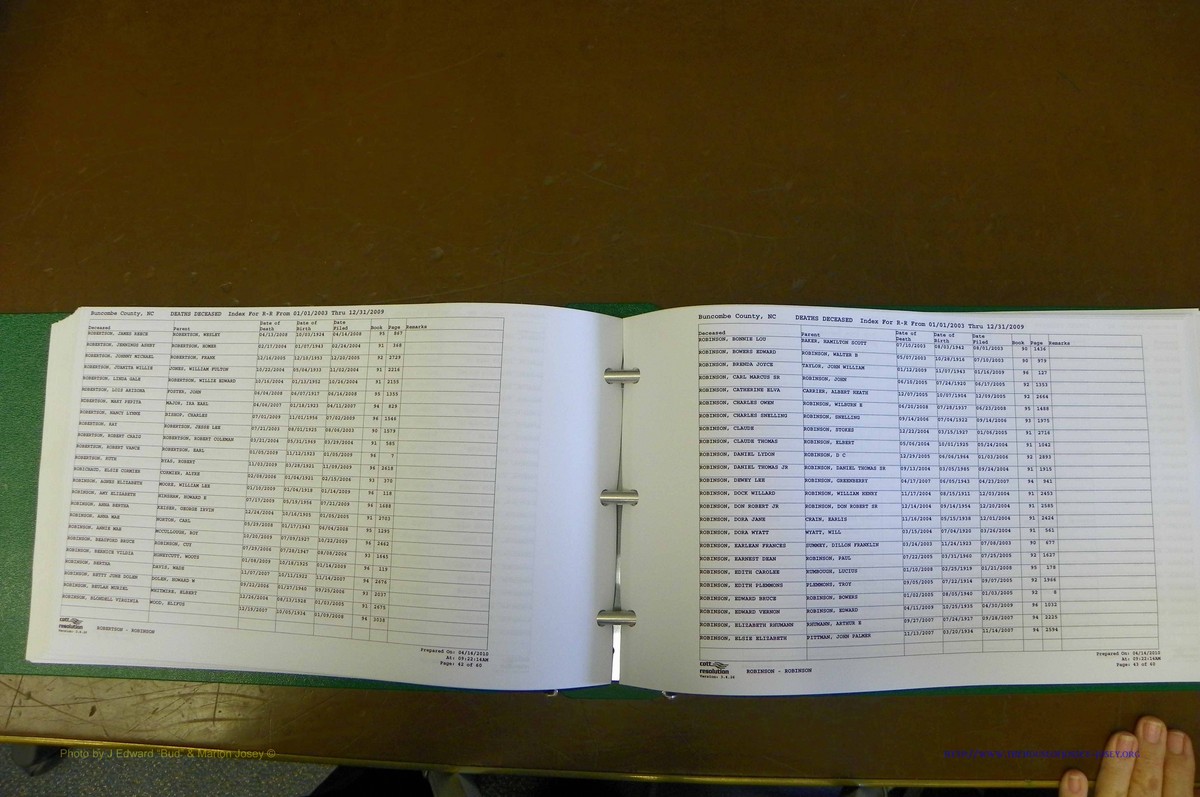 Buncombe County, NC DEATHS DECEASED Index For R-R From 01/01/2003 Thru 12/31/2009
Deceased Parent Date of Death Date of Birth Date Filed Book Page Remarks
ROBERTSON, JAMES REECE ROBERTSON, WESLEY 04/13/2008 10/02/1924 04/16/2008 95 867
ROBERTSON, JENNINGS ASHBY ROBERTSON, HOMER 02/17/2004 01/07/1943 02/24/2004 91 368
ROBERTSON, JOHNNY MICHAEL ROBERTSON, FRANK 12/16/2005 12/10/1953 12/20/2005 92 2729
ROBERTSON, JUANITA WILLIE JONES, WILLIAM FULTON 10/22/2004 05/04/1933 11/02/2004 91 2216
ROBERTSON, LINDA GALE ROBERTSON, WILLIE EDWARD 10/16/2004 01/13/1952 10/26/2004 91 2155
ROBERTSON, LOIS ARIZONA FOSTER, JOHN 06/04/2008 06/07/1917 06/16/2008 95 1355
ROBERTSON, MARY PEPITA MAJOR, IRA BASL 04/06/2007 01/18/1923 04/11/2007 94 829
ROBERTSON, NANCY LYNNE BISHOP, CHARLES 07/01/2009 11/01/1956 07/02/2009 96 1546
ROBERTSON, RAY ROBERTSON, JESSE LEE 07/21/2003 08/01/1925 08/06/2003 90 1579
ROBERTSON, ROBERT CRAIG ROBERTSON, ROBERT COLEMAN 03/21/2004 05/31/1969 03/29/2004 91 585
ROBERTSON, ROBERT VANCE ROBERTSON, BASL 01/05/2009 11/12/1923 01/05/2009 96 7
ROBERTSON, RUTH RYAN, ROBERT 11/03/2009 03/28/1921 11/09/2009 96 2618
ROBICHAUD, ELSIE CORMIER CORMIER, ALYRE 02/08/2006 01/04/1921 02/15/2006 93 370
ROBINSON, AGNES ELIZABETH MOORE, WILLIAM LEE 01/10/2009 01/04/1918 01/14/2009 96 118
ROBINSON, AMY ELIZABETH MINSHEW, HOWARD B 07/17/2009 96 1688
ROBINSON, ANNA BERTHA KEISER, GEORGE IRVIN 12/24/2004 91 2703
ROBINSON, ANNA MAE NORTON, CARL 05/29/2008 95 1295
ROBINSON, ANNIE MAE MCCULLOUGH, ROY 10/20/2009 10/22/2009 96 2462
ROBINSON, BEAUFORD BRUCE ROBINSON, COY 92 1645
ROBINSON, BERNICE VILDIA HONEYCUTT, WOOTS 01/14/2009 96 119
ROBINSON, BERTHA DAVIS, WADE 11/07/2007 10/11/1922 11/14/2007
ROBINSON, BETTY JUNE DOLEN DOLEN, HOWARD W
ROBINSON, BEULAH MURIEL WHITMIRE, ELBERT 91 2675
ROBINSON, BLONDELL VIRGINIA WOOD, ELIFUS 12/19/2007 10/05/1934
cott
resolution
Version: 3.4.28 ROBERTSON - ROBINSON
Prepared On: 04/14/2010
At: 09:22:14AM
Page: 42 of 60
Buncombe County, NC DEATHS DECEASED Index For R-R From 01/01/2003 Thru 12/31/2009
Deceased Parent Date of Death Date of Birth Date Filed Book Page Remarks
ROBINSON, BONNIE LOU BAKER, HAMILTON SCOTT 07/10/2003 08/03/1942 08/01/2003 90 1436
ROBINSON, BOWERS EDWARD ROBINSON, WALTER B 05/07/2003 10/28/1916 07/10/2003 90 979
ROBINSON, BRENDA JOYCE TAYLOR, JOHN WILLIAM 01/12/2009 11/07/1943 01/14/2009 96 127
ROBINSON, CARL MARCUS SR ROBINSON, JOHN 06/10/2005 07/24/1920 06/17/2005 92 1353
ROBINSON, CATHERINE ELVA CARRIER, ALBERT HEATH 12/07/2005 10/07/1914 12/09/2005 92 2664
ROBINSON, CHARLES OWEN ROBINSON, WILBURN E 06/20/2008 07/28/1937 06/23/2008 95 1488
ROBINSON, CHARLES SNELLING ROBINSON, SNELLING 09/14/2006 07/04/1922 09/14/2006 93 1975
ROBINSON, CLAUDE ROBINSON, STOKES 12/23/2004 03/15/1927 01/06/2005 91 2716
ROBINSON, CLAUDE THOMAS ROBINSON, ELBERT 05/06/2004 10/01/1925 05/24/2004 91 1042
ROBINSON, DANIEL LYDON ROBINSON, D C 12/29/2005 06/06/1964 01/03/2006 92 2893
ROBINSON, DANIEL THOMAS JR ROBINSON, DANIEL THOMAS SR 09/13/2004 03/05/1985 09/24/2004 91 1915
ROBINSON, DEWEY LEE ROBINSON, GREENBERRY 04/17/2007 06/05/1943 04/23/2007 94 941
ROBINSON, DOCK WILLARD ROBINSON, WILLIAM HENRY 11/17/2004 08/15/1911 12/03/2004 91 2453
ROBINSON, DON ROBERT JR ROBINSON, DON ROBERT SR 12/14/2004 09/14/1954 12/20/2004 91 2585
ROBINSON, DORA JANE CRAIN, EARLIS 11/18/2004 05/15/1938 12/01/2004 91 2424
ROBINSON, DORA WYATT WYATT, WILL 03/15/2004 07/04/1920 03/26/2004 91 561
ROBINSON, EARLEAN FRANCES SUMMEY, DILLON FRANKLIN 03/24/2003 11/24/1923 07/08/2003 90 877
ROBINSON, EARNEST DEAN ROBINSON, PAUL 07/22/2005 03/31/1960 07/25/2005 92 1627
ROBINSON, EDITH CAROLEE RUMBOUGH, LUCIUS 01/10/2008 02/25/1919 01/21/2008 95 178
ROBINSON, EDITH PLEMMONS PLEMMONS, TROY 09/05/2005 07/22/1914 09/07/2005 92 1966
ROBINSON, EDWARD BRUCE ROBINSON, BOWERS 01/02/2005 08/05/1940 01/03/2005 92 8
ROBINSON, EDWARD VERNON ROBINSON, EDWARD 04/11/2009 10/25/1935 04/30/2009 96 1032
ROBINSON, ELIZABETH RHUMANN RHUMANN, ARTHUR E 09/27/2007 07/24/1917 09/28/2007 94 2225
ROBINSON, ELSIE ELIZABETH PITTMAN, JOHN PALMER 11/13/2007 03/20/1934 11/14/2007 94 2594
cott
resolution
Version: 3.4.28 ROBINSON - ROBINSON
Prepared On: 04/14/2010
At: 09:22:14AM
Page: 43 of 60
Photo by J Edward "Bud" & Marion Josey ©